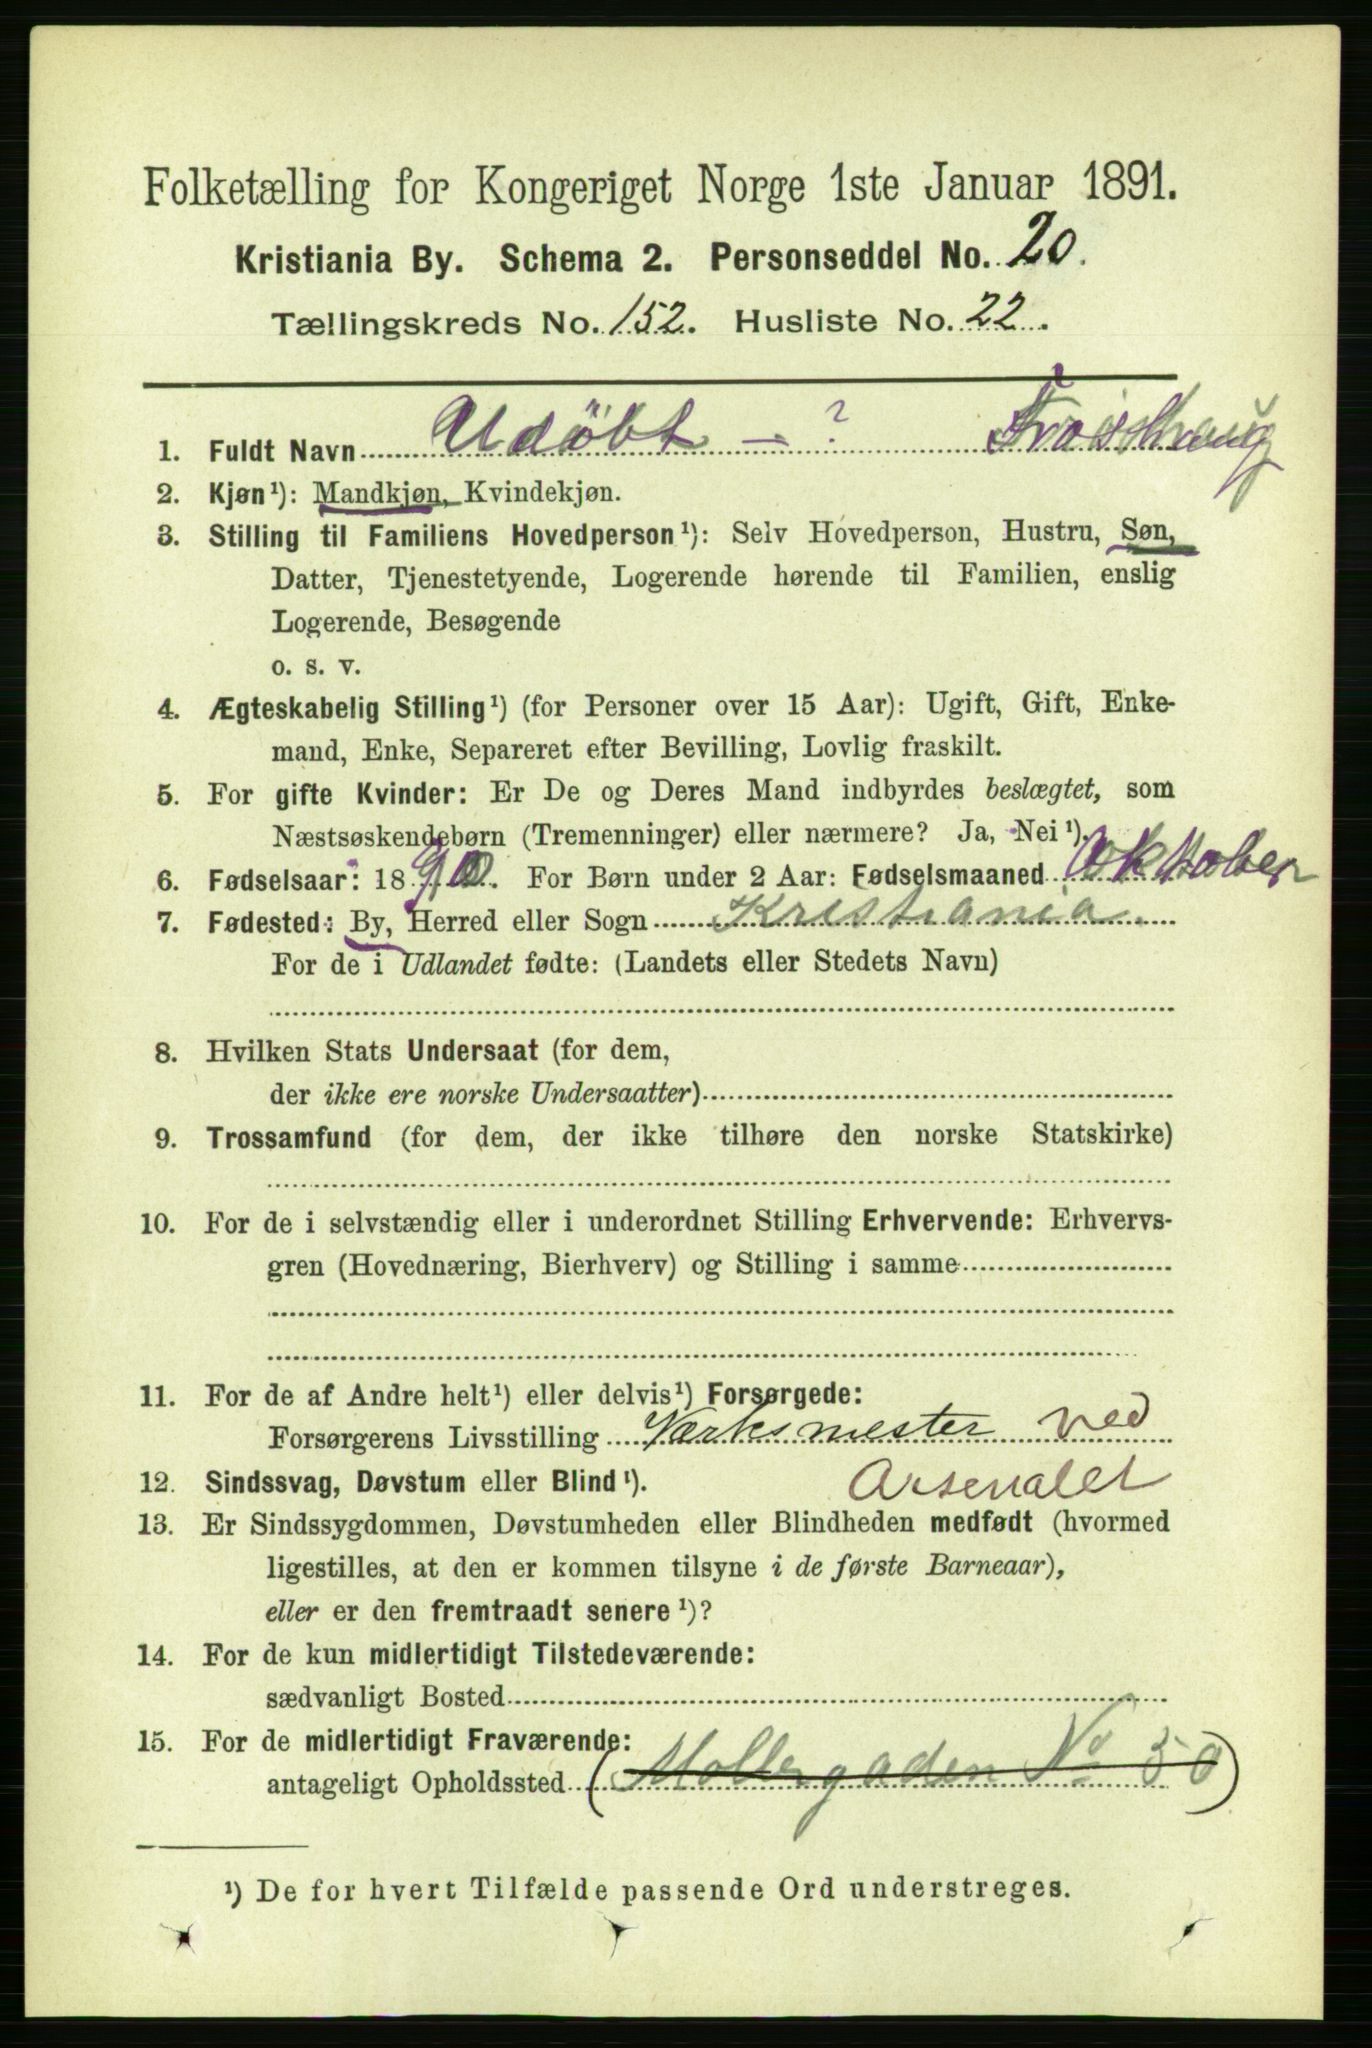 Folketælling for Kongeriget Norge 1ste Januar 1891.
Kristiania By. Schema 2. Personseddel No. 20.
Tællingskreds No. 152. Husliste No. 22.
1. Fuldt Navn Udøbt – ?
2. Kjøn¹): Mandkjøn, Kvindekjøn.
3. Stilling til Familiens Hovedperson¹): Selv Hovedperson, Hustru, Søn,
Datter, Tjenestetyende, Logerende hørende til Familien, enslig
Logerende, Besøgende
o. s. v.
4. Ægteskabelig Stilling¹) (for Personer over 15 Aar): Ugift, Gift, Enke-
mand, Enke, Separeret efter Bevilling, Lovlig fraskilt.
5. For gifte Kvinder: Er De og Deres Mand indbyrdes beslægtet, som
Næstsøskendebørn (Tremenninger) eller nærmere? Ja, Nei¹).
6. Fødselsaar: 1890. For Børn under 2 Aar: Fødselsmaaned Oktober
7. Fødested: By, Herred eller Sogn Kristiania.
For de i Udlandet fødte: (Landets eller Stedets Navn)
8. Hvilken Stats Undersaat (for dem,
der ikke ere norske Undersaatter)
9. Trossamfund (for dem, der ikke tilhøre den norske Statskirke)
10. For de i selvstændig eller i underordnet Stilling Erhvervende: Erhvervs-
gren (Hovednæring, Bierhverv) og Stilling i samme
11. For de af Andre helt¹) eller delvis¹) Forsørgede:
Forsørgerens Livsstilling Værksmester ved
Arsenalet
12. Sindssvag, Døvstum eller Blind¹).
13. Er Sindssygdommen, Døvstumheden eller Blindheden medfødt (hvormed
ligestilles, at den er kommen tilsyne i de første Barneaar),
eller er den fremtraadt senere¹)?
14. For de kun midlertidigt Tilstedeværende:
sædvanligt Bosted
15. For de midlertidigt Fraværende:
antageligt Opholdssted (Møllergaden No 50)
¹) De for hvert Tilfælde passende Ord understreges.